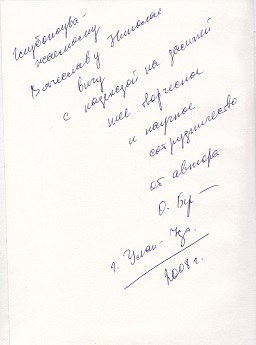 Глубокоува-
жаемому
Вячеславу Николае
вичу
с надеждой на дальней
шее творческое
и научное
сотрудничество
от автора
г. Улан-Удэ.
2008 г.